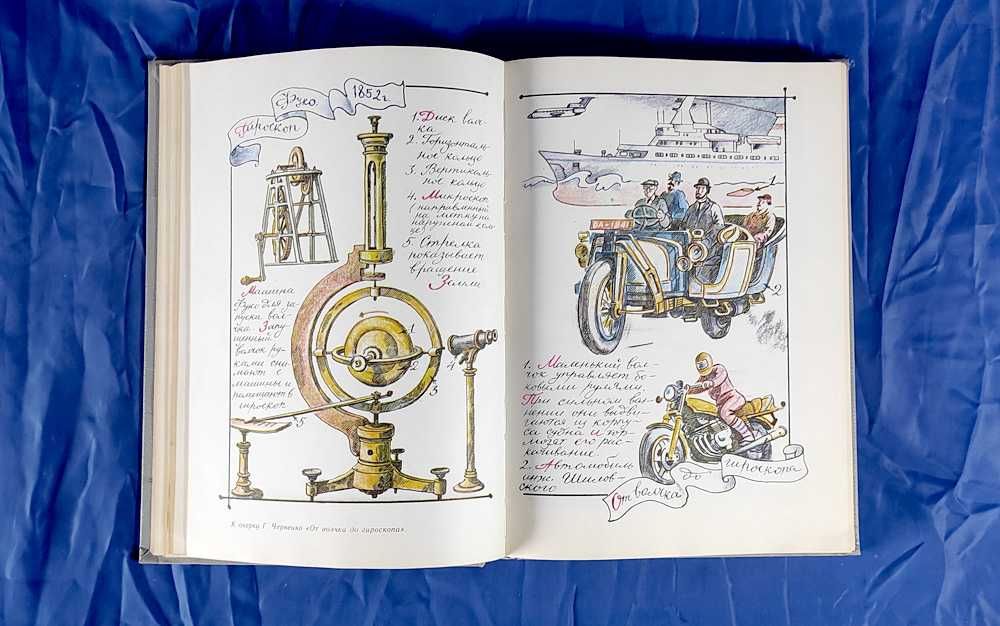 Гироскоп
Фуко.
1852г.
1. Диск вол-
чка
2. Горизонталь-
ное кольцо
3. Вертикаль-
ное кольцо
4. Микроскоп
направленный
на метку на
наружном коль-
це
5. Стрелка
показывает
вращение
Земли
Машина
Фуко для за-
пуска вол-
чка. Запу-
щенный
волчок ру-
ками сни-
мают с
машины и
помещают в
гироскоп
1
2
3
4
5
К очерку Г. Черненко «От волчка до гироскопа».
1
БА-1841
2
1. Маленький вол-
чок управляет бо-
ковыми рулями.
При сильном вол-
нении они выдви-
гаются из корпу-
са судна и тор-
мозят его рас-
качивание
2. Автомобиль
инж. Шилов-
ского
От волчка до гироскопа